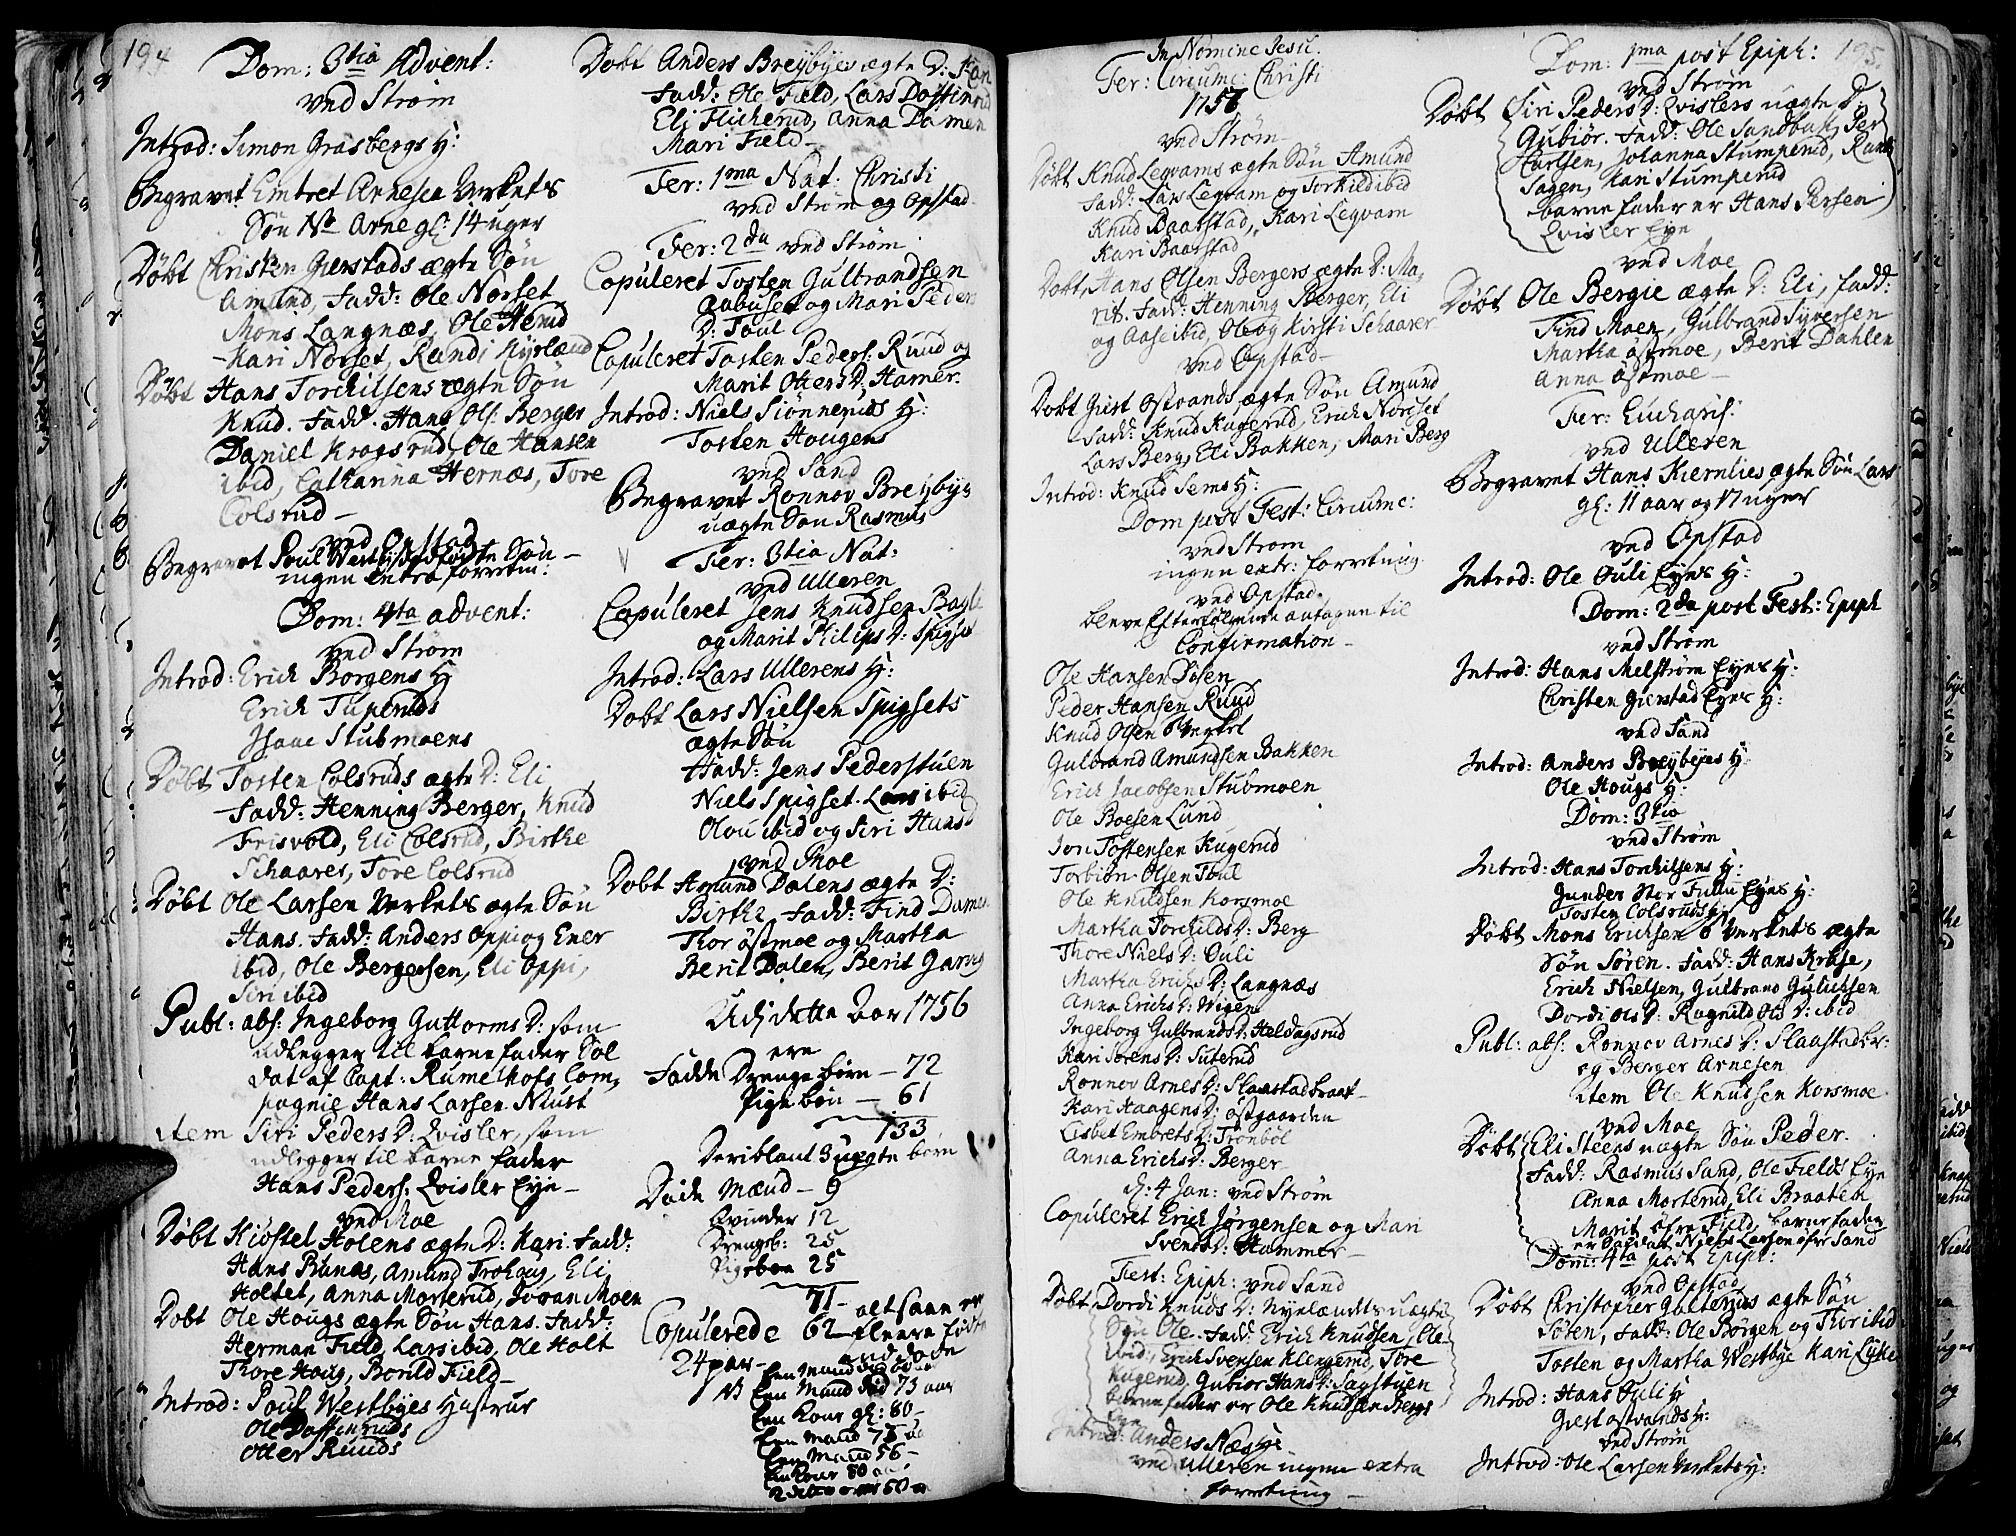 194
Dom: 3tia Advent:
ved Strøm
Introd: Simon Grasbergs H:
Begravet Embret Arnesen Verkets
Søn No Arne gl: 14 uger
Døbt Christen Gierstads ægte Søn
Amund, Fadd: Ole Norset
Mons Langnæs, Ole Herud
Kari Norset, Randi Nyrlænd
Døbt Hans Torchilsens ægte Søn
Knud. Fadd. Hans Ols: Berger
Daniel Krogsrud, Ole Hansen
ibid, Catharina Hernæs, Tore
Colsrud
ved Opstad
Begravet Poul Westbyes ægte Søn
ingen extra forretn:
Dom: 4ta advent:
ved Strøm
Introd: Erich Borgens H
Erich Tuperuds
Isaac Stubmoens
Døbt Tosten Colsruds ægte D: Eli
Fadd: Henning Berger, Knud
Frisvold, Eli Colsrud, Birthe
Schaarer, Tore Colsrud
Døbt Ole Larsen Verkets ægte Søn
Hans. Fadd: Anders Oppi og Ener
ibid, Ole Bergersen, Eli Oppi,
Siri ibid
Publ: abs: Ingeborg Guttorms D: som
udlegger til barnefader Sol
dat af Capt: Rumelhofs Com,
pagnie Hans Larsen Niust
item Siri Peders D: Qvisler, som
udlegger til barne fader
Hans Peders: Qvisler Eye
ved Moe
Døbt Kiøstel Holens ægte D: Kari. Fadd:
Hans Bunæs, Amund Trohaug, Eli
Holtet, Anna Morterud, Joran Moen
Døbt Ole Hougs ægte Søn Hans. Fadd:
Herman Field, Lars ibid, Ole Holt
Thore Houg, Borild Field
Introd: Poul Westbyes Hustrue
Ole Daffinruds
Otter Ruuds
Døbt Anders Breybyes ægte D: Kari
Fadd: Ole Field, Lars Daffinrud
Eli Flicherud, Anna Damen
Mari Field
Fer: 1ma Nat: Christi
ved Strøm og Opstad
Fer: 2da ved Strøm
Copuleret Tosten Gulbrandsen
Aabuset og Mari Peders
D: Toul
Copuleret Tosten Peders: Ruud og
Marit Otters D: Hamer.
Introd: Niels Siønneruds H:
Tosten Hougens
ved Sand
Begravet Ronnov Breybyes
uægte Søn Rasmus
Fer: 3tia Nat:
ved Ulleren
Copuleret Jens Knudsen Bagli
og Marit Philips D: Spigset
Introd: Lars Ullerens H:
Døbt Lars Nielsen Spigsets
ægte Søn
Fadd: Jens Pederstuen
Niels Spigset. Lars ibid
Olou ibid og Siri Hans D
ved Moe
Døbt Amund Dalens ægte D:
Birthe Fadd: Find Damen
Thor Østmoe og Martha
Berit Dalen, Berit Jams
Udi dette Aar 1756
ere
Fødde Drenge børn — 72
Pige børn — 61
133
Deriblant 3 uægte børn
Døde Mænd — 9
Qvinder 12
Drengeb: 25
Pigebørn 25
71
altsaa er
62 fleere fødte
end døde
Copulerede
24 par
NB Een Mand
Een Mand 73 aar
Een Kone gl: 80
Een Mand 75 aar
Een Mand 56
En Kone 80
In Nomine Jesu.
Fer: Circumc: Christi
1757
ved Strøm
Døbt Knud Leqvams ægte Søn Amund
Fadd: Lars Leqvam og Torkild ibid
Knud Baastad, Kari Leqvam
Kari Baastad
Døbt Hans Olsen Bergers ægte D: Ma,
rit. Fadd: Henning Berger, Eli
og Aase ibid, Ole og Kirsti Schaarer
ved Opstad
Døbt Giest Ostvands ægte Søn Amund
Fadd: Knud Kugerud, Erich Nordset
Lars Berg, Eli Bakken, Mari Berg
Introd: Knud Sems H:
Dom post Fest: Circumc:
ved Strøm
ingen extr: forretning
ved Opstad
bleve Efterfølgende antagen til
Confirmation
Ole Hansen Døsen
Peder Hansen Ruud
Knud Olsen Verket
Gulbrand Amundsen Bakken
Erich Jacobsen Stubmoen
Ole Boesen Lund
Jon Tostensen Kugerud
Torbiørn Olsen Toul
Ole Knudsen Korsmoe
Martha Torchilds D: Berg
Thore Niels D: Ouli
Martha Erichs D: Langnæs
Anna Erichs D: Wigen
Ingeborg Gulbrands D: Heldagsrud
Kari Sørens D: Suterud
Ronnov Arnes D: Slaastadbraat
Kari Haagens D: Østgaarden
Lisbet Embrets D: Trønbøl
Anna Erichs D: Berger
d: 4 Jan: ved Strøm
Copuleret Erich Jørgensen og Mari
Svends D: Hammer
Fest: Epiph: ved Sand
Døbt Dordi Knuds D: Nyelændets uægte
Søn Ole. Fadd: Erich Knudsen, Ole
ibid, Erich Svensen Klengerud, Tore
Kugerud, Gubior Hans D: Sagstuen
barnefader er Ole Knudsen Bergs
Eye
Introd: Anders Næs H:
ved Ulleren ingen extra
forretning
195
Dom: 1ma post Epiph:
ved Strøm
Døbt Siri Peders D: Qvislers uægte D:
Gubiør. Fadd: Ole Sandbak, Per
Carlsen, Johanna Stumperud, Randi
Sagen, Kari Stumperud
barne fader er Hans Persen
Qvisler Eye
ved Moe
Døbt Ole Bergie ægte D: Eli, Fadd:
Find Moen, Gulbrand Syversen
Martha Østmoe, Berit Dahlen
Anna Østmoe
Fer: Eucharis:
ved Ulleren
Begravet Hans Kiernlies ægte Søn Lars
gl: 11 aar og 17 uger
ved Opstad
Introd: Ole Ouli Eyes H:
Dom: 2da post Fest: Epiph
ved Strøm
Introd: Hans Melstrøm Eyes H:
Christen Gierstad Eyes H:
ved Sand
Introd: Anders Breybyes H:
Ole Hougs H:
Dom: 3tia
ved Strøm
Introd: Hans Torchilsens H:
Gunder Stor Fulu Eyes H:
Tosten Colsruds H:
Døbt Mons Erichsen Verkets ægte
Søn Søren. Fadd: Hans Kruse,
Erich Nielsen, Gulbrand Gulichsen
Dordi Ols D: Ragnild Ols D: ibid
Publ: abs: Ronnov Arnes D: Slaastadbr:
og Berger Arnesen
item Ole Knudsen Korsmoe
ved Moe
Døbt Eli Steens uægte Søn Peder.
Fadd: Rasmus Sand, Ole Fields Eye
Anna Morterud, Eli Braaten
Marit øfre Field, barnefader
er Soldat Niels Larsen øfre Sand
Dom: 4ta post Epiph:
ved Opstad
Døbt Christopher Galteruds ægte Søn
Søren, Fadd: Ole Børgen og Thor ibid
Tosten og Martha Westbye Kari Lykke
Introd: Hans Fuli H
Giest Ostvands H:
ved Strøm
Introd: Ole Larsen Verkets H: